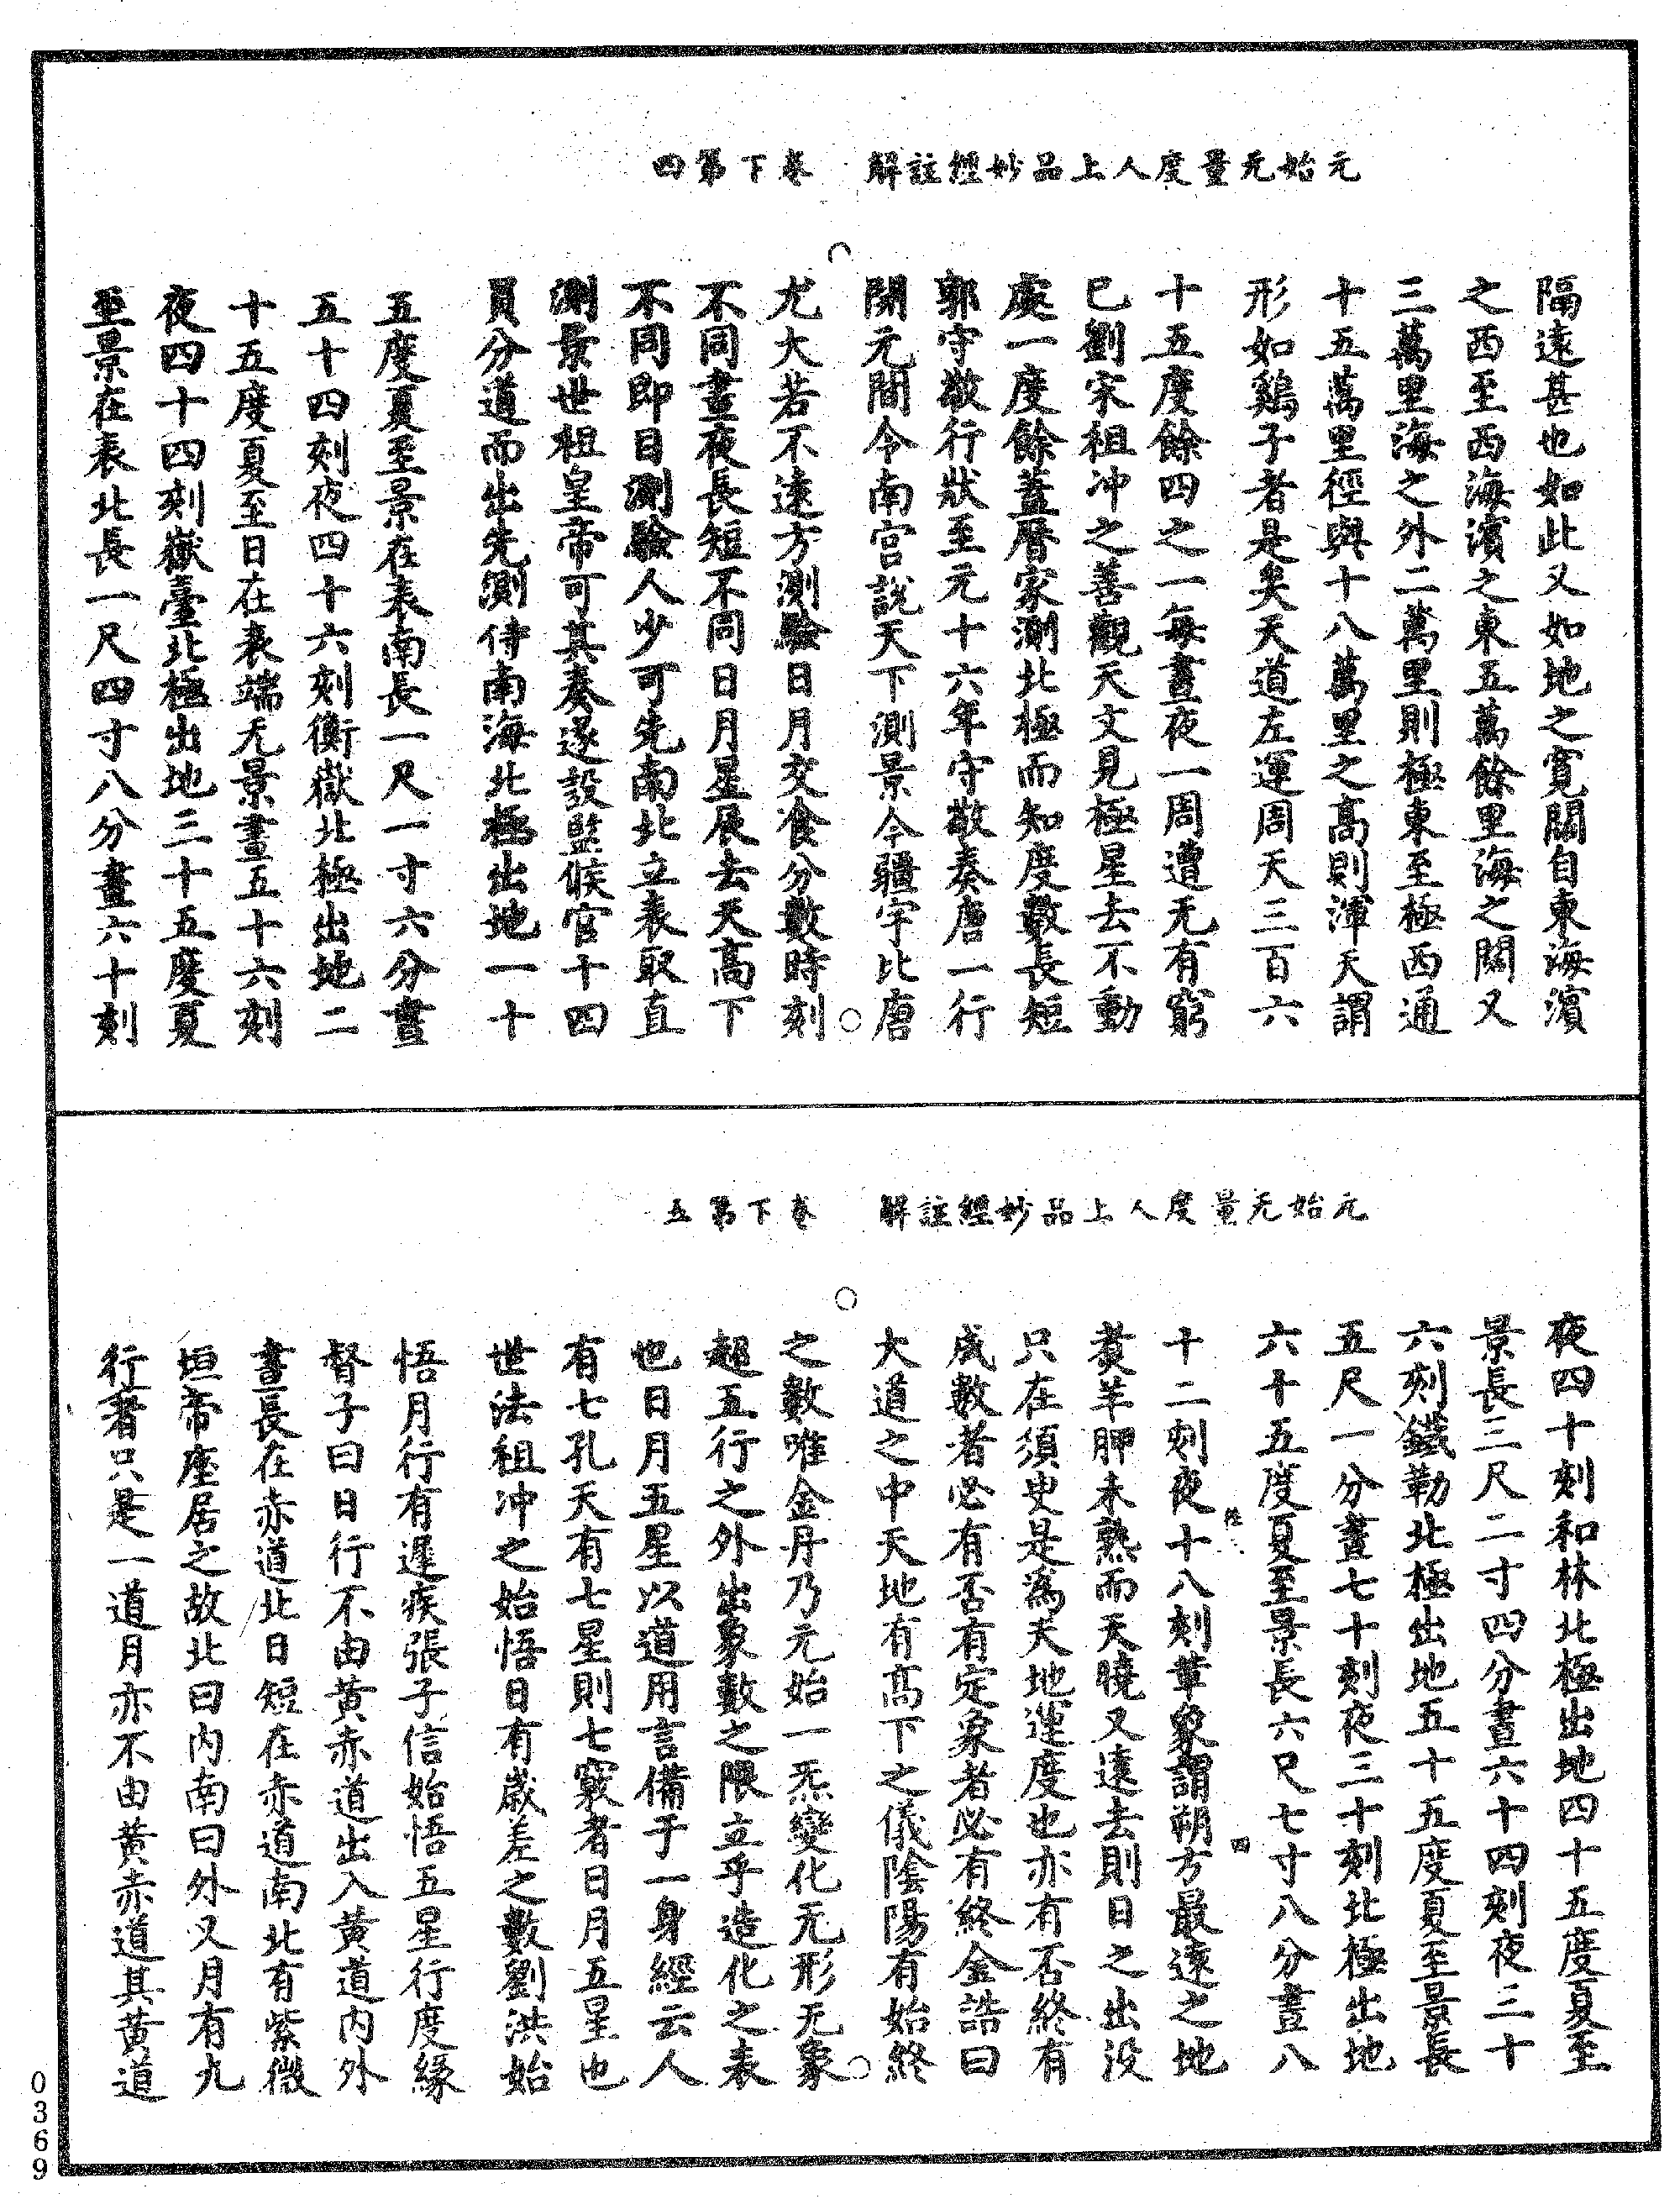 元始无量度人上品妙經註解　卷下第四
隔遠甚也如此又如地之寬闊自東海濵
之西至西海濵之東五萬餘里海之闊又
三萬里海之外二萬里則極東至極西通
十五萬里徑與十八萬里之高則渾天謂
形如鷄子者是矣天道左運周天三百六
十五度餘四之一每晝夜一周遭无有窮
已劉宋祖冲之善觀天文見極星去不動
處一度餘蓋曆家測北極而知度數長短
郭守敬行狀至元十六年守敬奏唐一行
開元間令南宫說天下測景今疆宇比唐
尤大若不遠方測驗日月交食分數時刻
不同晝夜長短不同日月星辰去天髙下
不同即日測驗人少可先南北立表取直
測景世祖皇帝可其奏遂設監候官十四
員分道而出先測侍南海北極出地一十
五度夏至景在表南長一尺一寸六分晝
五十四刻夜四十六刻衡嶽北極出地二
十五度夏至日在表端无景晝五十六刻
夜四十四刻嶽臺北極出地三十五度夏
至景在表北長一尺四寸八分晝六十刻
元始无量度人上品妙經註解　卷下第五
夜四十刻和林北極出地四十五度夏至
景長三尺二寸四分晝六十四刻夜三十
六刻鐵勒北極出地五十五度夏至景長
五尺一分晝七十刻夜三十刻北極出地
六十五度夏至景長六尺七寸八分晝八
十二刻夜十八刻革象謂朔方最遠之地
煑羊胛未熟而天曉又遠去則日之出没
只在須臾是為天地運度也亦有否終有
成數者必有否有定象者必有終金誥曰
大道之中天地有髙下之儀陰陽有始終
之數唯金丹乃元始一炁變化无形无象
超五行之外出象數之限立乎造化之表
也日月五星以道用言備于一身經云人
有七孔天有七星則七竅者日月五星也
世法祖冲之始悟日有歲差之數劉洪始
悟月行有遲疾張子信始悟五星行度緣
督子曰日行不由黄赤道出入黄道内外
晝長在赤道北日短在赤道南北有紫微
垣帝座居之故北曰内南曰外又月有九
行者只是一道月亦不由黄赤道其黄道
0369